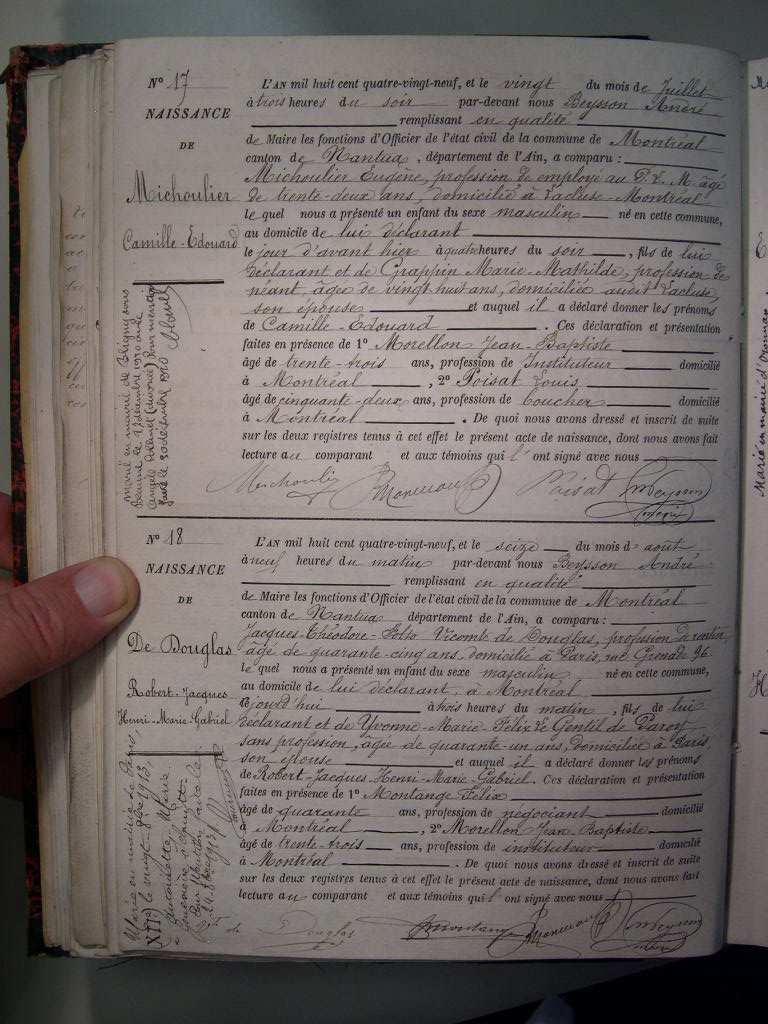 N° 17
NAISSANCE
DE
Michoulier
Camille-Edouard
L'AN mil huit cent quatre-vingt-neuf, et le vingt du mois de Juillet
à trois heures du soir par-devant nous Beysson André
remplissant en qualité
de Maire les fonctions d'Officier de l'état civil de la commune de Montréal
canton de Nantua, département de l'Ain, a comparu :
Michoulier Eugène, profession de employé au P. L. M. âgé
de trente-deux ans, domicilié à Lacluse-Montréal
lequel nous a présenté un enfant du sexe masculin né en cette commune,
au domicile de lui déclarant
le jour d'avant hier à quatre heures du soir, fils de lui
déclarant et de Grappin Marie-Mathilde, profession de
néant, âgée de vingt huit ans, domiciliée audit Lacluse,
son épouse et auquel il a déclaré donner les prénoms
de Camille-Edouard. Ces déclaration et présentation
faites en présence de 1° Morellon Jean-Baptiste
âgé de trente-trois ans, profession de Instituteur domicilié
à Montréal, 2° Poisat Louis
âgé de cinquante-deux ans, profession de boucher domicilié
à Montréal. De quoi nous avons dressé et inscrit de suite
sur les deux registres tenus à cet effet le présent acte de naissance, dont nous avons fait
lecture au comparant et aux témoins qui l'ont signé avec nous
Michoulier Poisat Beysson
Marié en mairie de
le 27 décembre 1910
le 30 décembre 1910
N° 18
NAISSANCE
DE
De Douglas
Robert-Jacques
Henri-Marie-Gabriel
L'AN mil huit cent quatre-vingt-neuf, et le seize du mois d'août
à neuf heures du matin par-devant nous Beysson André
remplissant en qualité
de Maire les fonctions d'Officier de l'état civil de la commune de Montréal
canton de Nantua département de l'Ain, a comparu :
Jacques-Théodore- Vicomte de Douglas, profession de rentier
âgé de quarante-cinq ans, domicilié à Paris, rue Grenade 96
lequel nous a présenté un enfant du sexe masculin né en cette commune,
au domicile de lui déclarant, à Montréal
aujourd'hui à trois heures du matin, fils de lui
déclarant et de Yvonne-Marie-Félix Le Gentil de Paroy
sans profession, âgée de quarante-un ans, domiciliée à Paris
son épouse et auquel il a déclaré donner les prénoms
de Robert-Jacques-Henri-Marie-Gabriel. Ces déclaration et présentation
faites en présence de 1° Montange Félix
âgé de quarante ans, profession de négociant domicilié
à Montréal, 2° Morellon Jean Baptiste
âgé de trente-trois ans, profession de instituteur domicilié
à Montréal. De quoi nous avons dressé et inscrit de suite
sur les deux registres tenus à cet effet le présent acte de naissance, dont nous avons fait
lecture au comparant et aux témoins qui l'ont signé avec nous
de Douglas Montange Beysson
Marié en mairie de Paris,
1913,
Marie